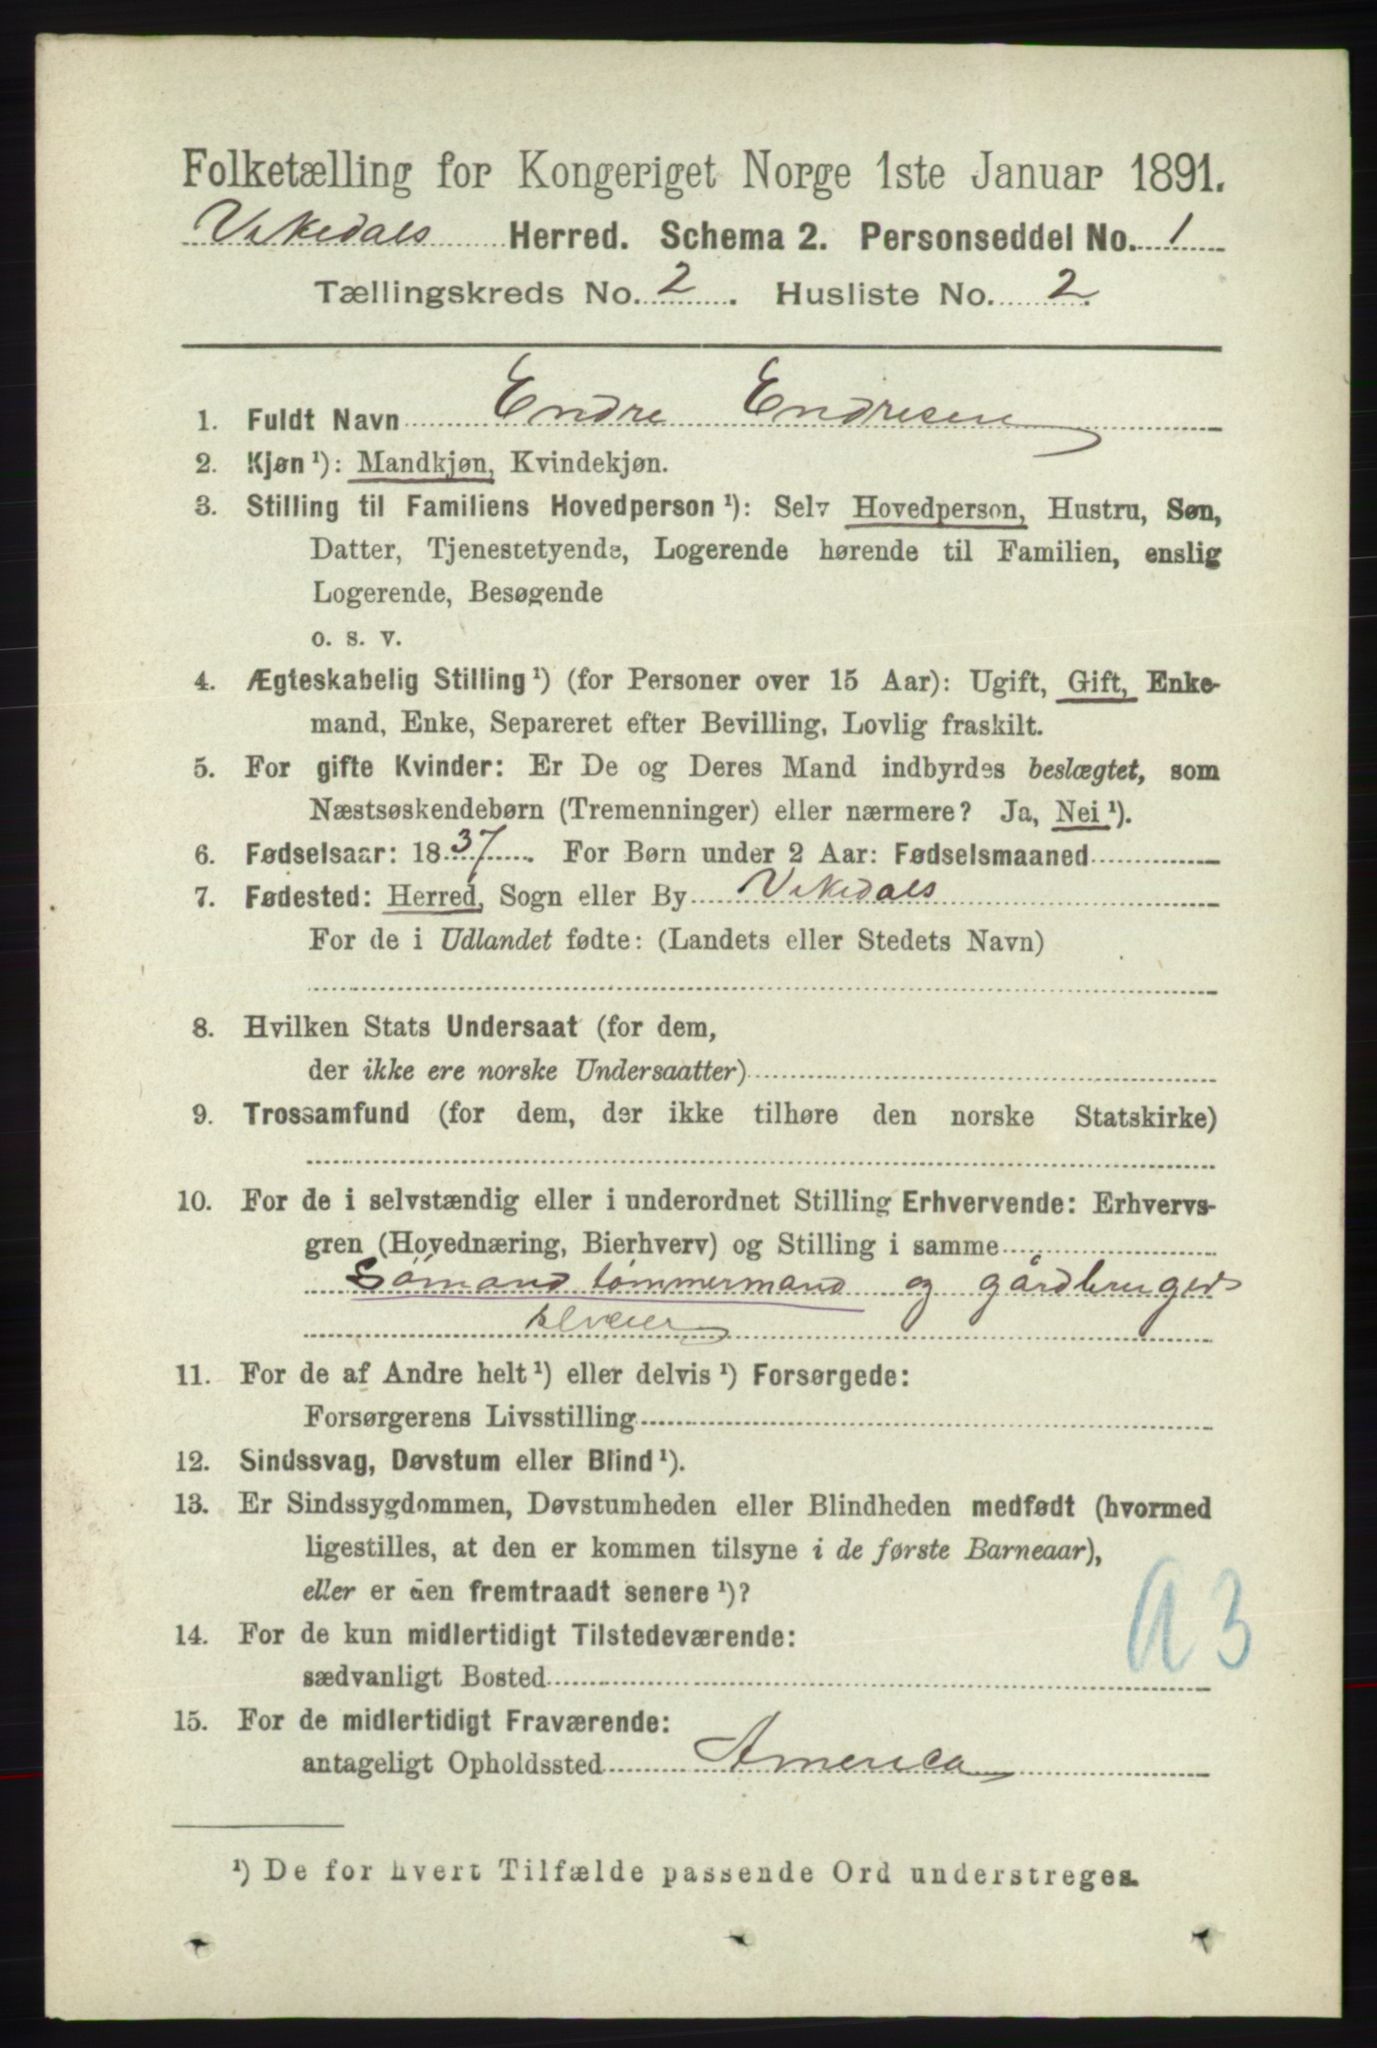 Folketælling for Kongeriget Norge 1ste Januar 1891.
Vikedals Herred. Schema 2. Personseddel No. 1
Tællingskreds No. 2. Husliste No. 2.
1. Fuldt Navn Endre Endresen
2. Kjøn ¹): Mandkjøn, Kvindekjøn.
3. Stilling til Familiens Hovedperson ¹): Selv Hovedperson, Hustru, Søn,
Datter, Tjenestetyende, Logerende hørende til Familien, enslig
Logerende, Besøgende
o. s. v.
4. Ægteskabelig Stilling ¹) (for Personer over 15 Aar): Ugift, Gift, Enke-
mand, Enke, Separeret efter Bevilling, Lovlig fraskilt.
5. For gifte Kvinder: Er De og Deres Mand indbyrdes beslægtet, som
Næstsøskendebørn (Tremenninger) eller nærmere? Ja, Nei ¹).
6. Fødselsaar: 1837. For Børn under 2 Aar: Fødselsmaaned
7. Fødested: Herred, Sogn eller By Vikedals
For de i Udlandet fødte: (Landets eller Stedets Navn)
8. Hvilken Stats Undersaat (for dem,
der ikke ere norske Undersaatter)
9. Trossamfund (for dem, der ikke tilhøre den norske Statskirke)
10. For de i selvstændig eller i underordnet Stilling Erhvervende: Erhvervs-
gren (Hovednæring, Bierhverv) og Stilling i samme
Sømand tømmermand og gårdbruger
selveier
11. For de af Andre helt ¹) eller delvis ¹) Forsørgede:
Forsørgerens Livsstilling
12. Sindssvag, Døvstum eller Blind ¹).
13. Er Sindssygdommen, Døvstumheden eller Blindheden medfødt (hvormed
ligestilles, at den er kommen tilsyne i de første Barneaar),
eller er den fremtraadt senere ¹)?
a 3
14. For de kun midlertidigt Tilstedeværende:
sædvanligt Bosted
15. For de midlertidigt Fraværende:
antageligt Opholdssted America
¹) De for hvert Tilfælde passende Ord understreges.